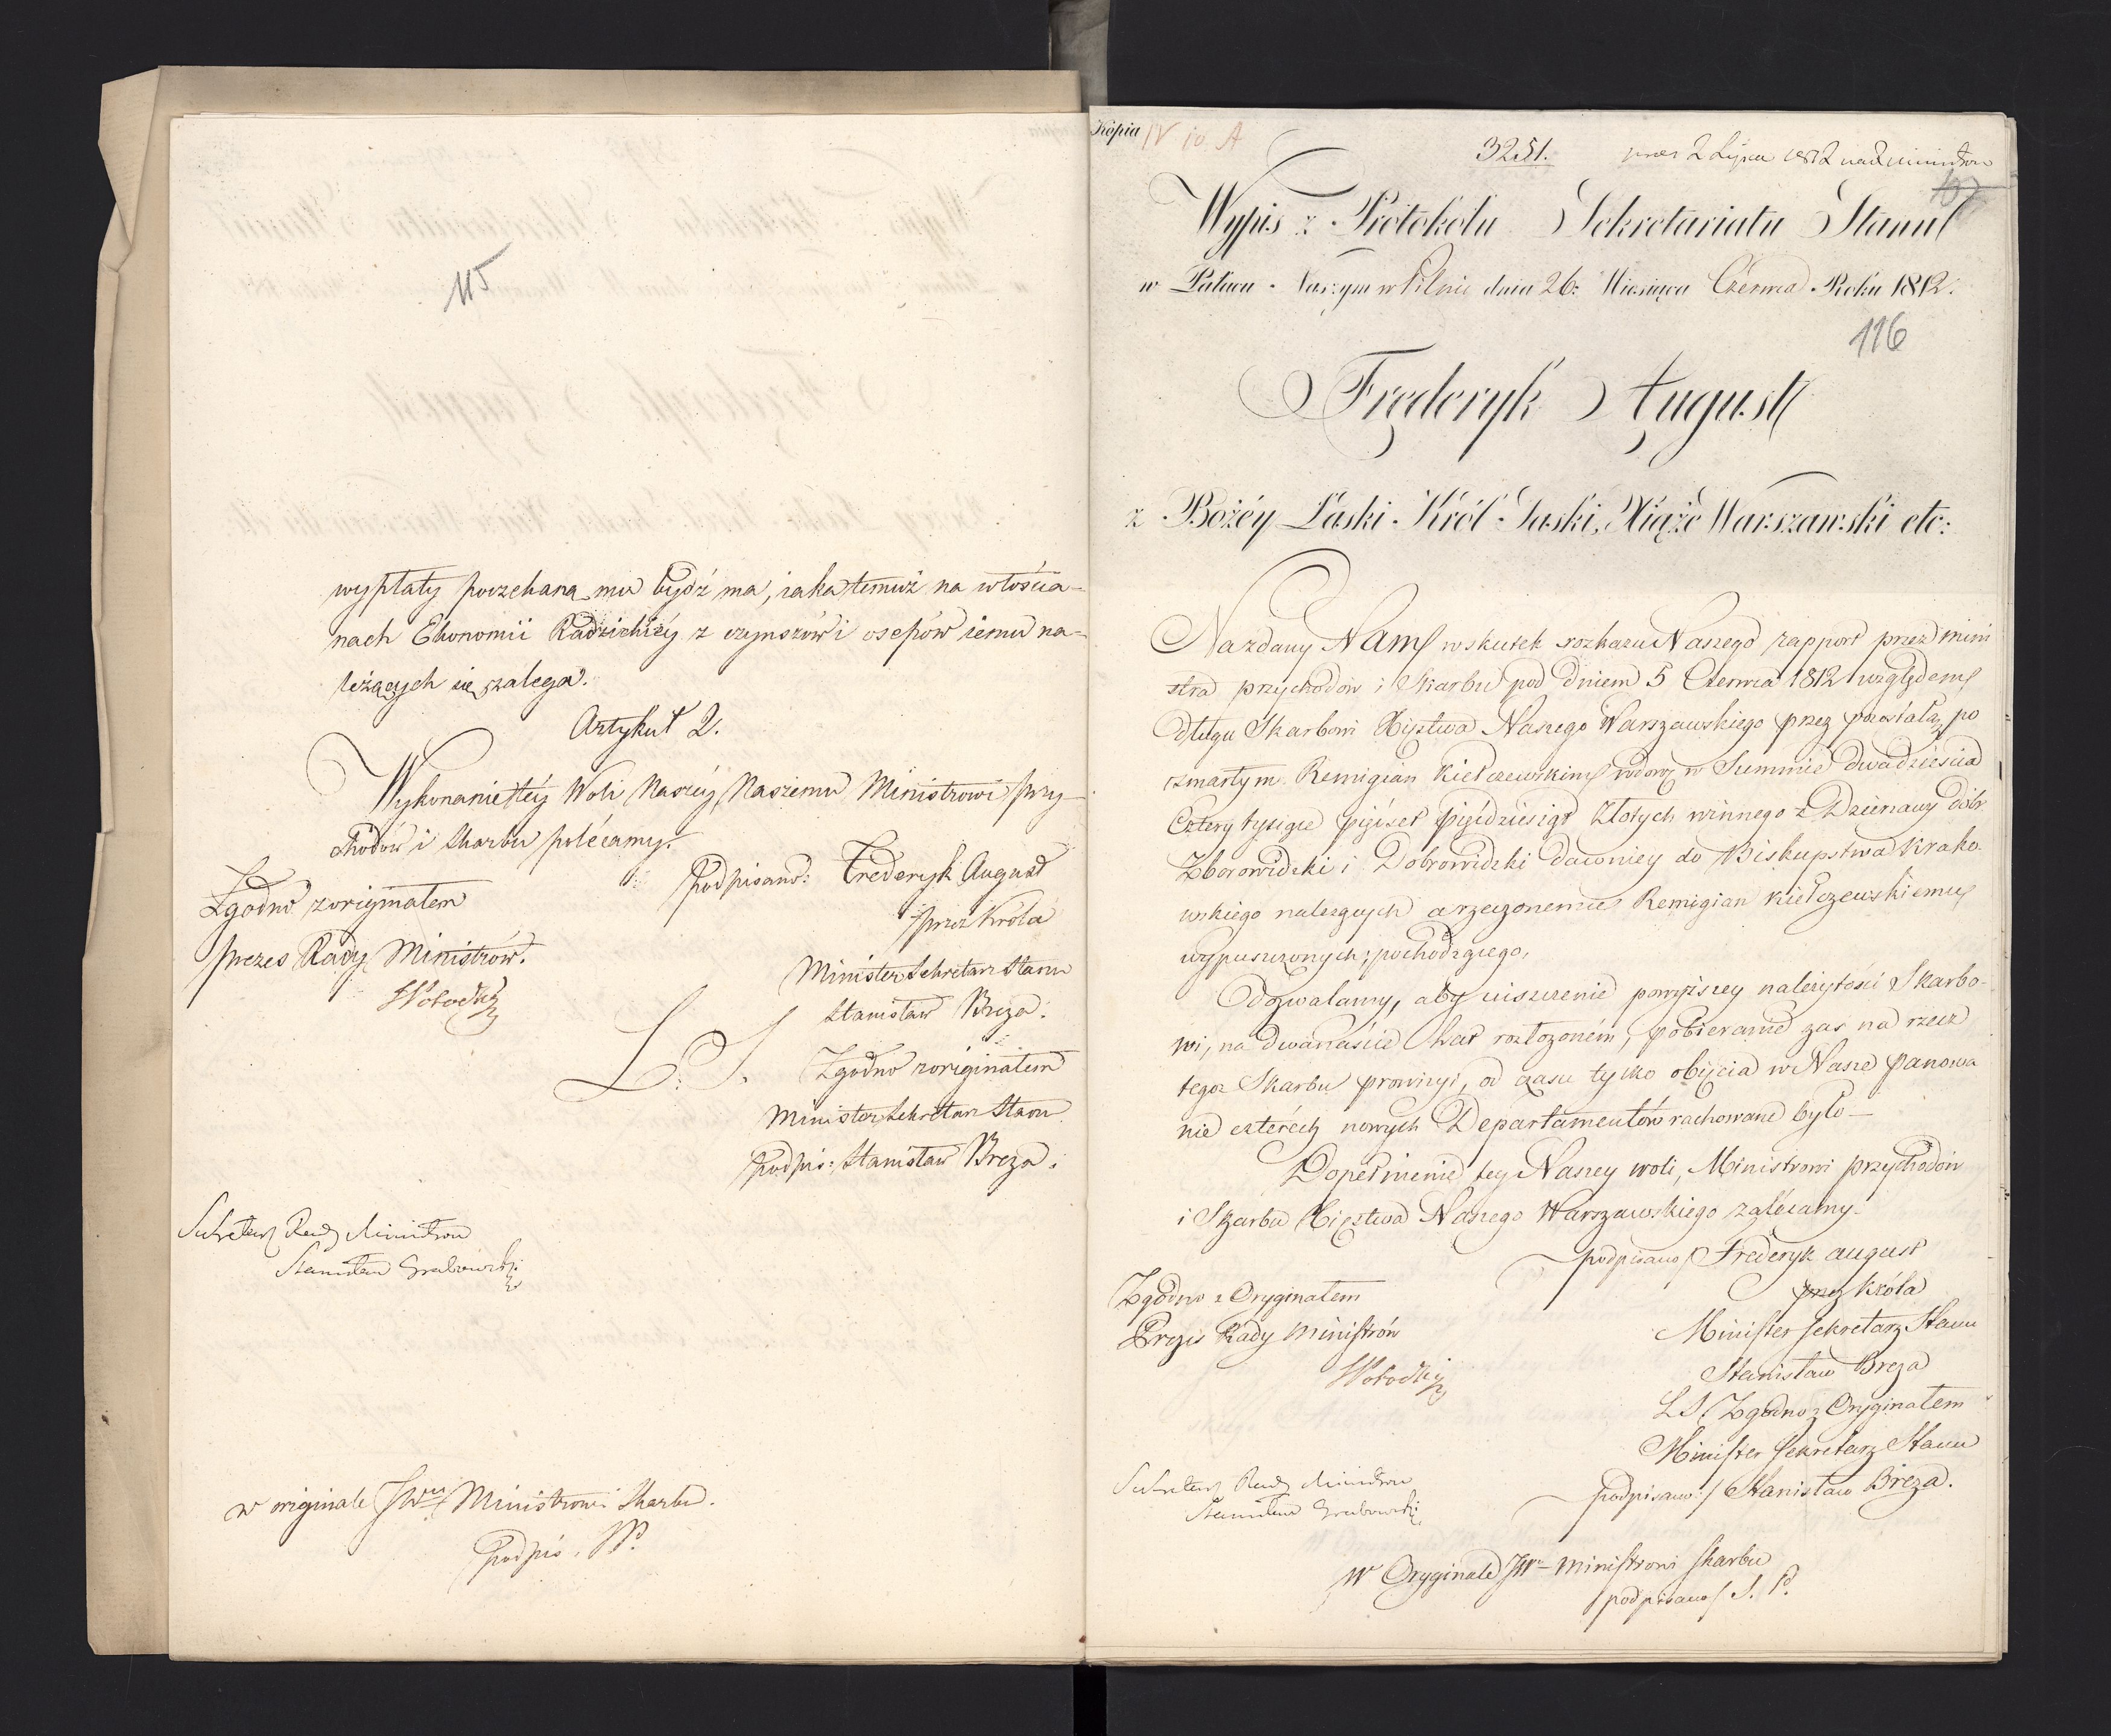 115
wypłaty poczekaną mu bydź ma, iaka temuż na włościa-
nach Ekonomii Radzickiéy z czynszów i osepów iemu na-
leżących się zalega.
Artykuł 2.
Wykonanie téy Woli Naszéy, Naszemu Ministrowi Przy-
chodów i Skarbu polécamy.
podpisano: Frederyk August
Zgodno z originałem
przez Króla
prezes Rady Ministrów.
Minister Sekretarz Stanu
Stanisław Breza.
L. S.
Zgodno z originałem
Minister Sekretarz Stanu
podpis: Stanisław Breza.
Sekretarz Rady Ministrow
Stanisław Grabowski
w originale JWmu Ministrowi Skarbu.
podpis.
Kopia
IV 10 A
3251.
2 Lipca 1812
Wypis z Protokołu Sekretariatu Stanu
w Pałacu Naszym w Pilnic dnia 26: Miesiąca Czerwca Roku 1812.
116
Fryderyk August
z Bożéy Łaski Król Saski, Xiąże Warszawski etc:
Na zdany Nam w skutek rozkazu Naszego rapport przez mini
stra przychodów i Skarbu pod dniem 5 Czerwca 1812 względem
długu Skarbowi Xięstwa Naszego Warszawskiego przez pozostałą po
zmarłym Remigian Kiełczewskim wdowę w Summie dwadzieścia
Cztery tysiące pięćset pięćdziesiąt Złotych winnego z Dzierżawy dóbr
Zborowidzki i Dobrowidzki dawniey do Biskupstwa Krako
wskiego należących a rzeczonemu Remigian Kiełczewskiemu
wypuszczonych, pochodzącego,
Dozwalamy, aby uiszczenie powyższey należytości Skarbo-
wi, na dwanaście lat rozłożoném, pobieranie zas na rzecz
tegoz Skarbu prowizyi, od czasu tylko obięcia w Nasze panowa
nie czterech nowych Departamentów rachowane było
Dopełnienie tey Naszey woli, Ministrowi przychodów
i Skarbu Xięstwa Naszego Warszawskiego zalécamy.
podpisano/ Frederyk august
Zgodno z Oryginałem
przez Króla
Prezes Rady Ministrów
Minister Sekretarz Stanu
Stanisław Breza
LS/ Zgodno z Oryginałem
Minister Sekretarz Stanu
Sekretarz Rady Ministrow
podpisano/ Stanisław Breza.
Stanisław Grabowski
W Oryginale JW Ministrowi Skarbu
podpisano/ S. P.